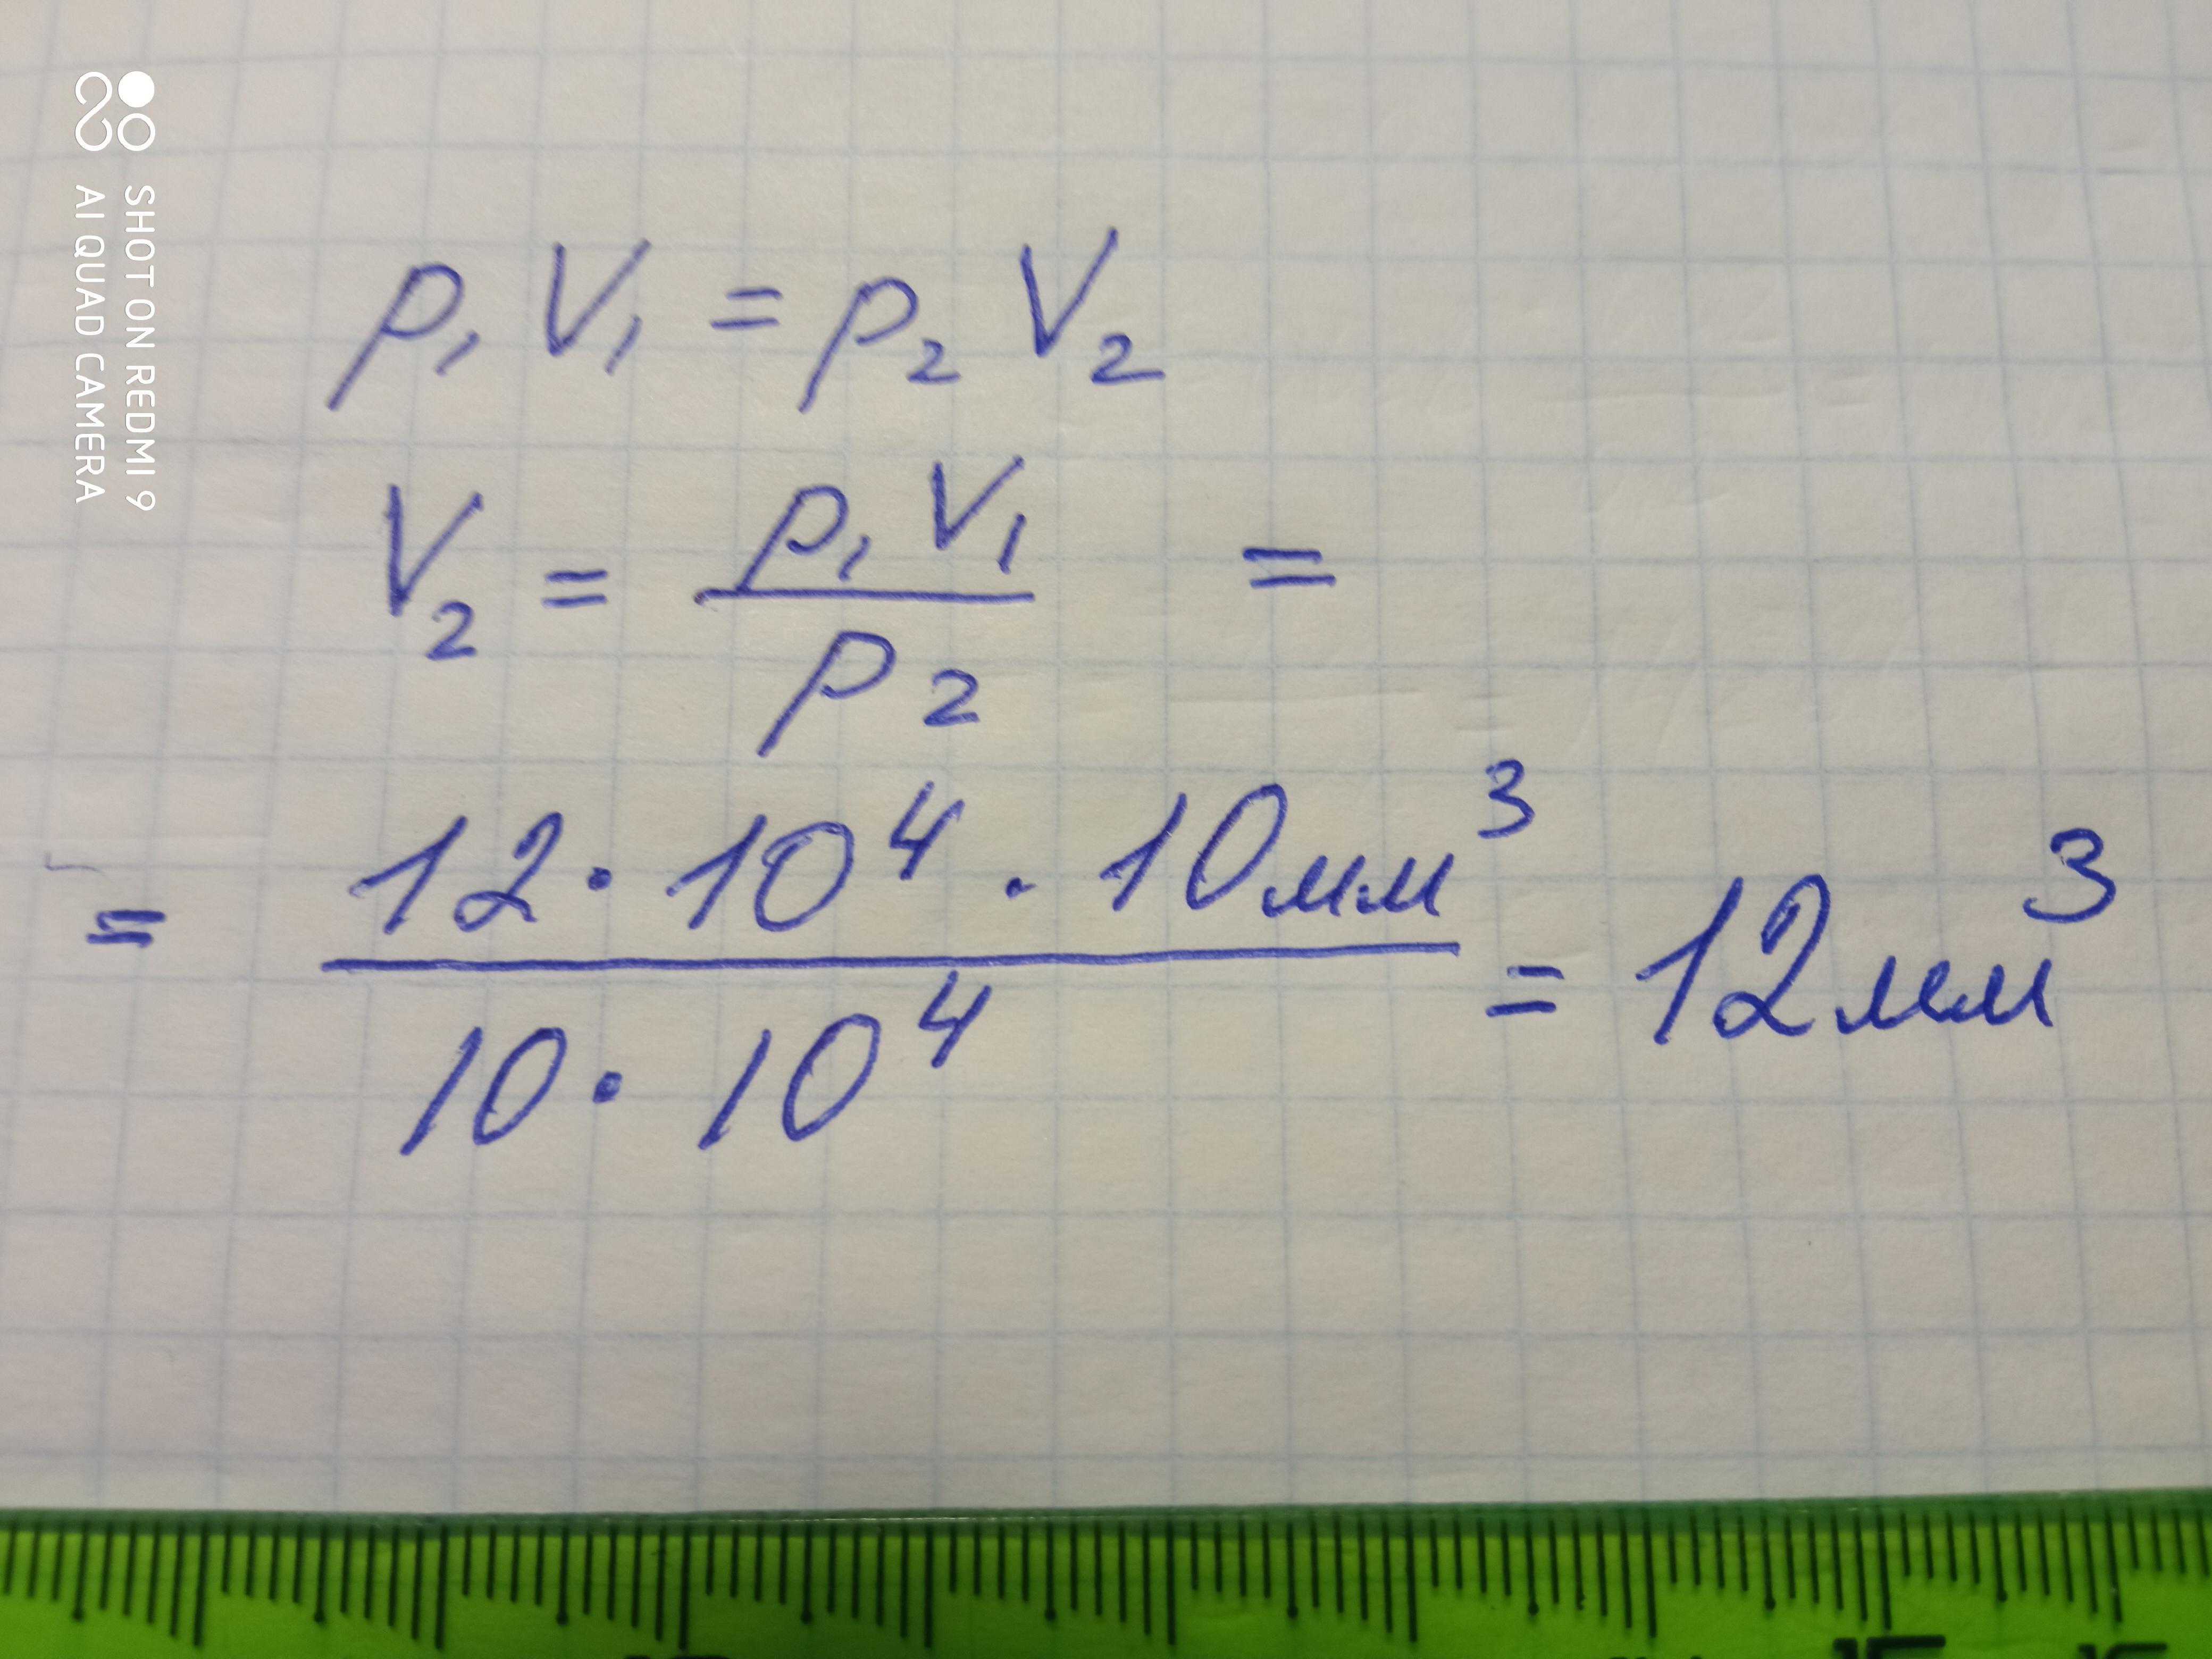 SHOT ON REDMI 9
AI QUAD CAMERA
p₁ V₁ = p₂ V₂
V₂ = p₁ V₁ / p₂ =
= 12 · 10⁴ · 10мм³ / 10 · 10⁴ = 12мм³